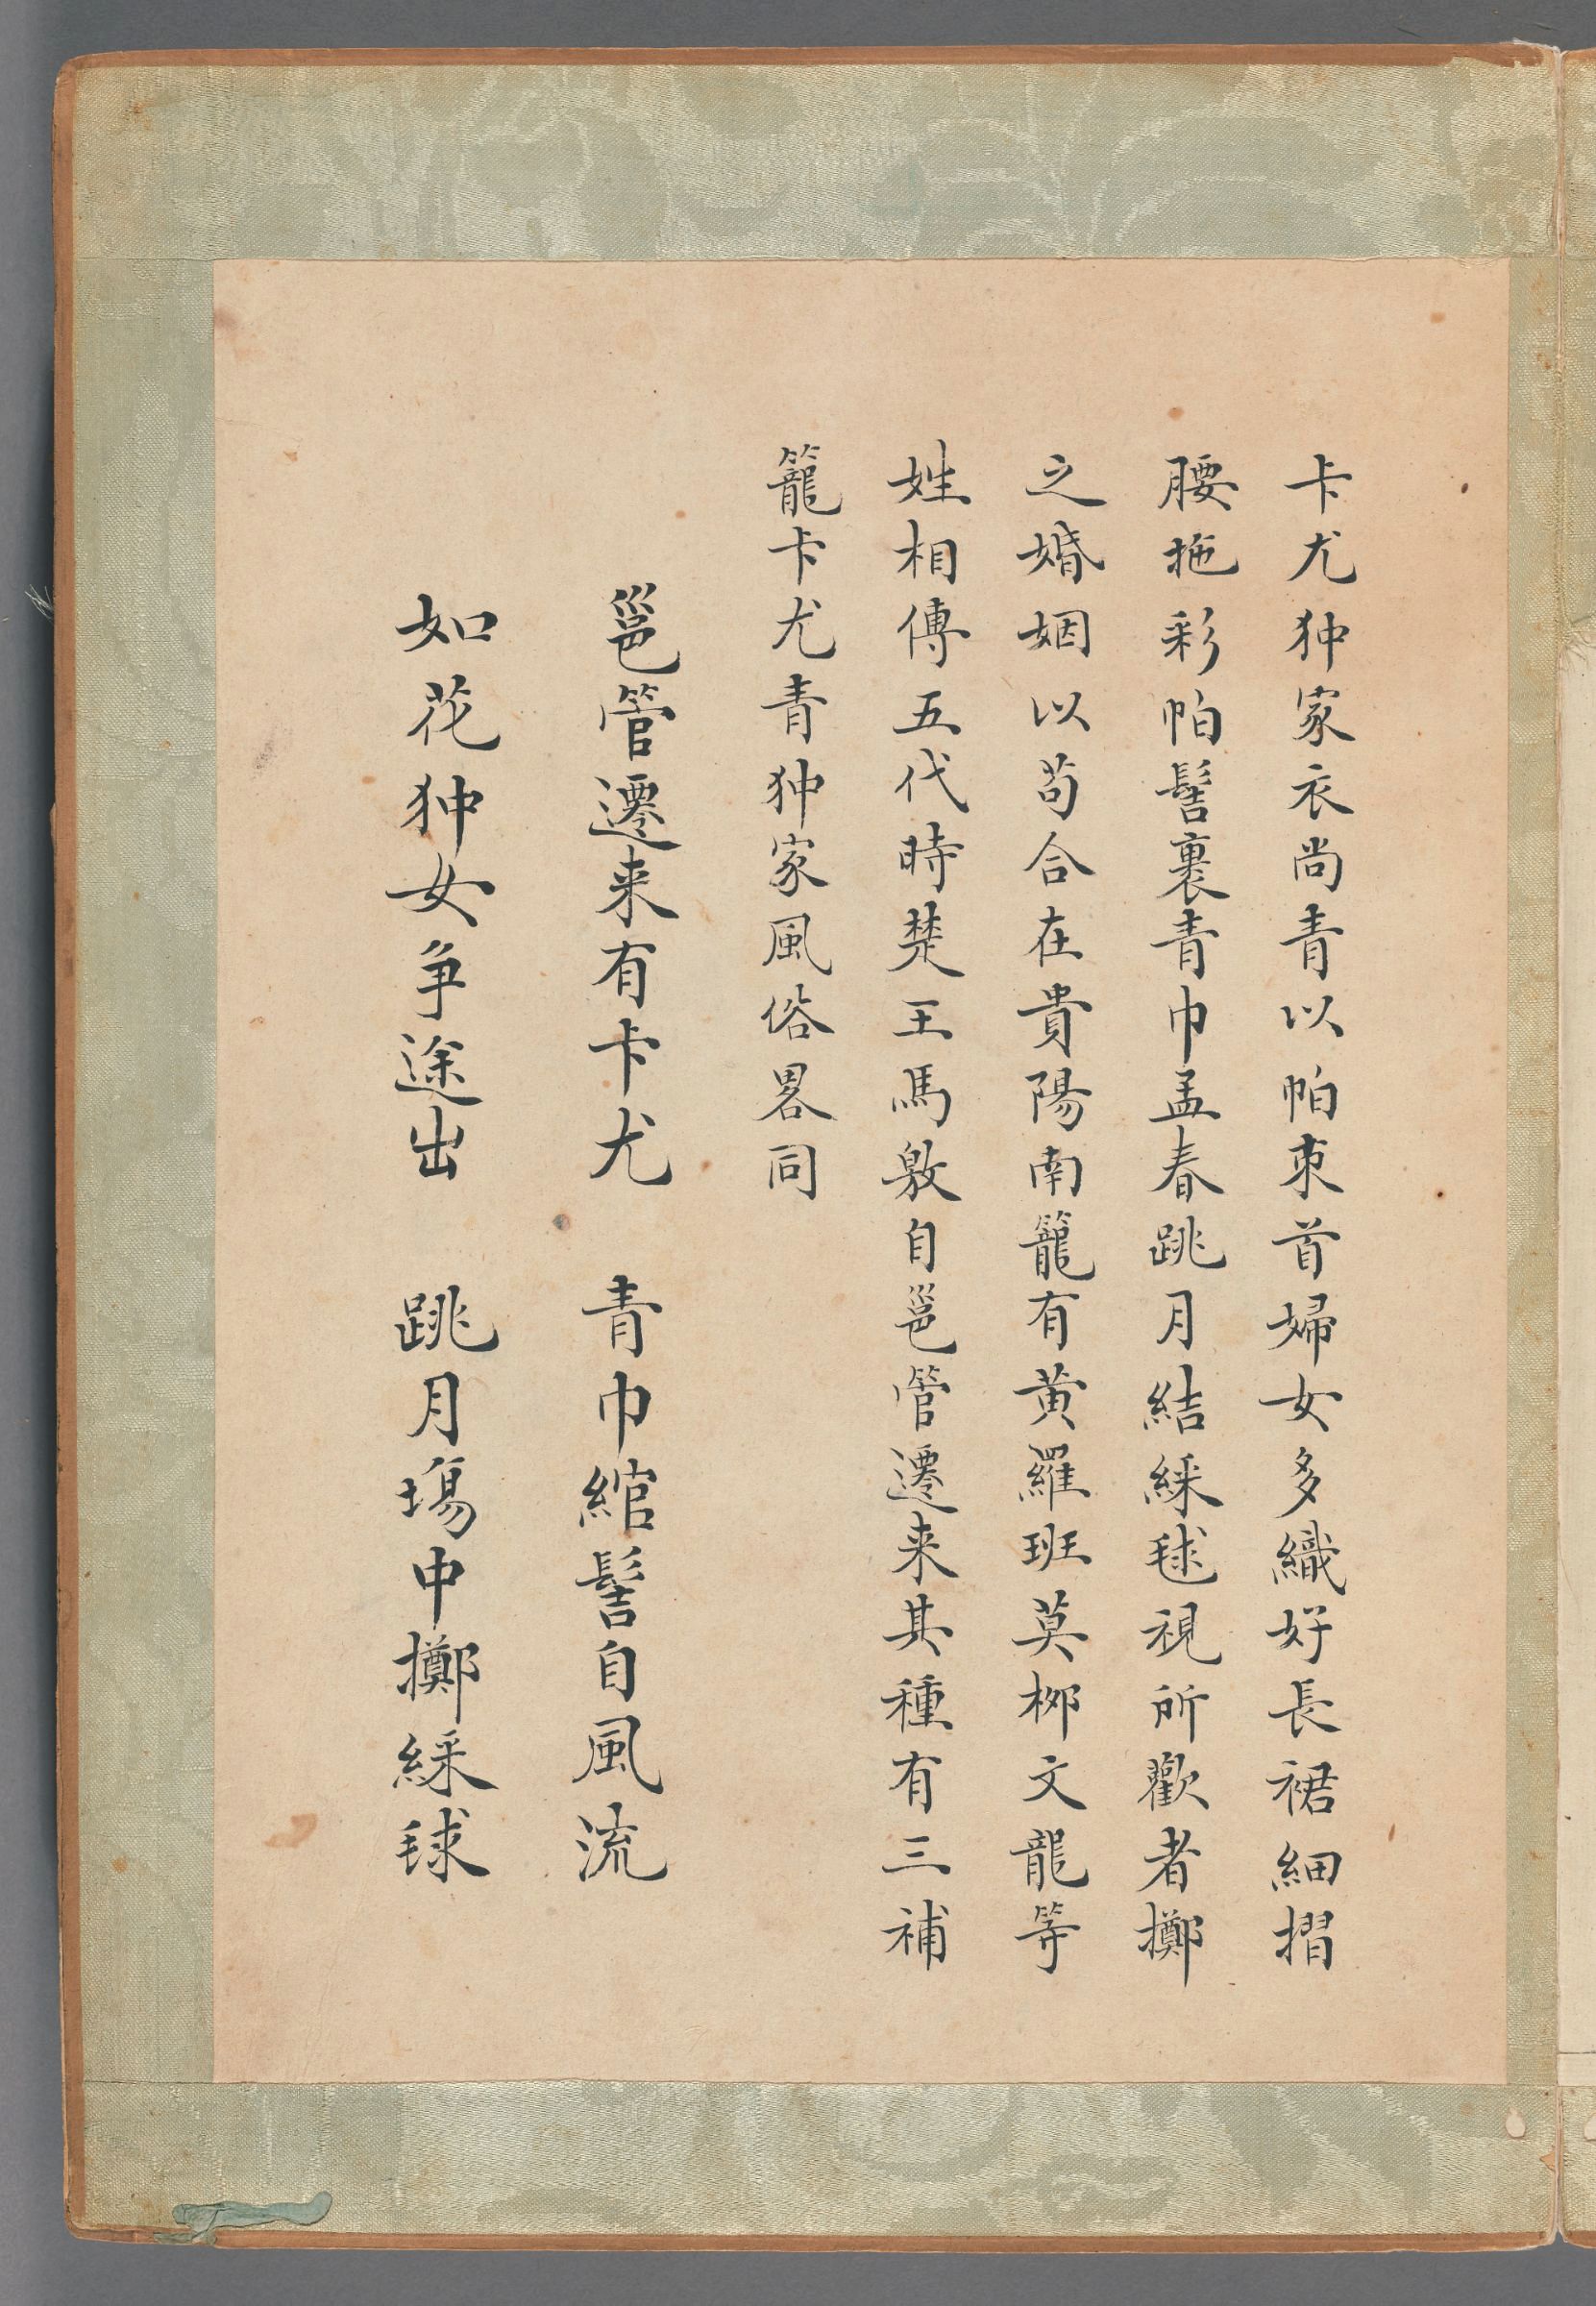 卡尤狆家衣尚青以帕束首婦女多織好長裙細摺
腰拖彩帕髻裹青巾孟春跳月結綵毬視所歡者擲
之婚姻以苟合在貴陽南籠有黄羅班莫柳文龍等
姓相傳五代時楚王馬敫自邕管遷来其種有三補
籠卡尤青狆家風俗畧同
邕管遷来有卡尤 青巾綰髻自風流
如花狆女争途出 跳月塲中擲綵毬